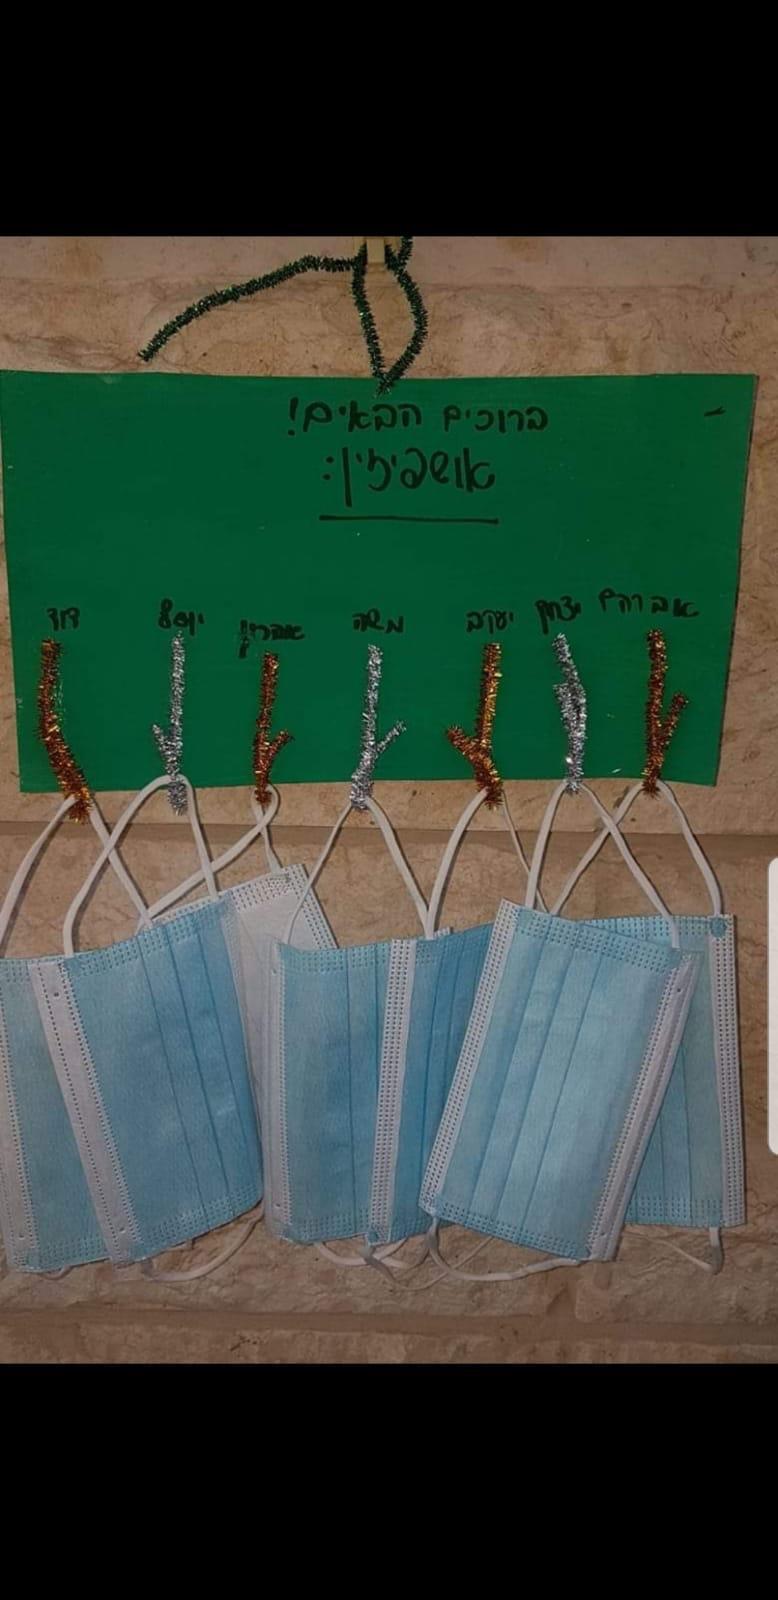 ברוכים הבאים!
אושפיזין:
אברהם יצחק יעקב משה אהרון יוסף דוד